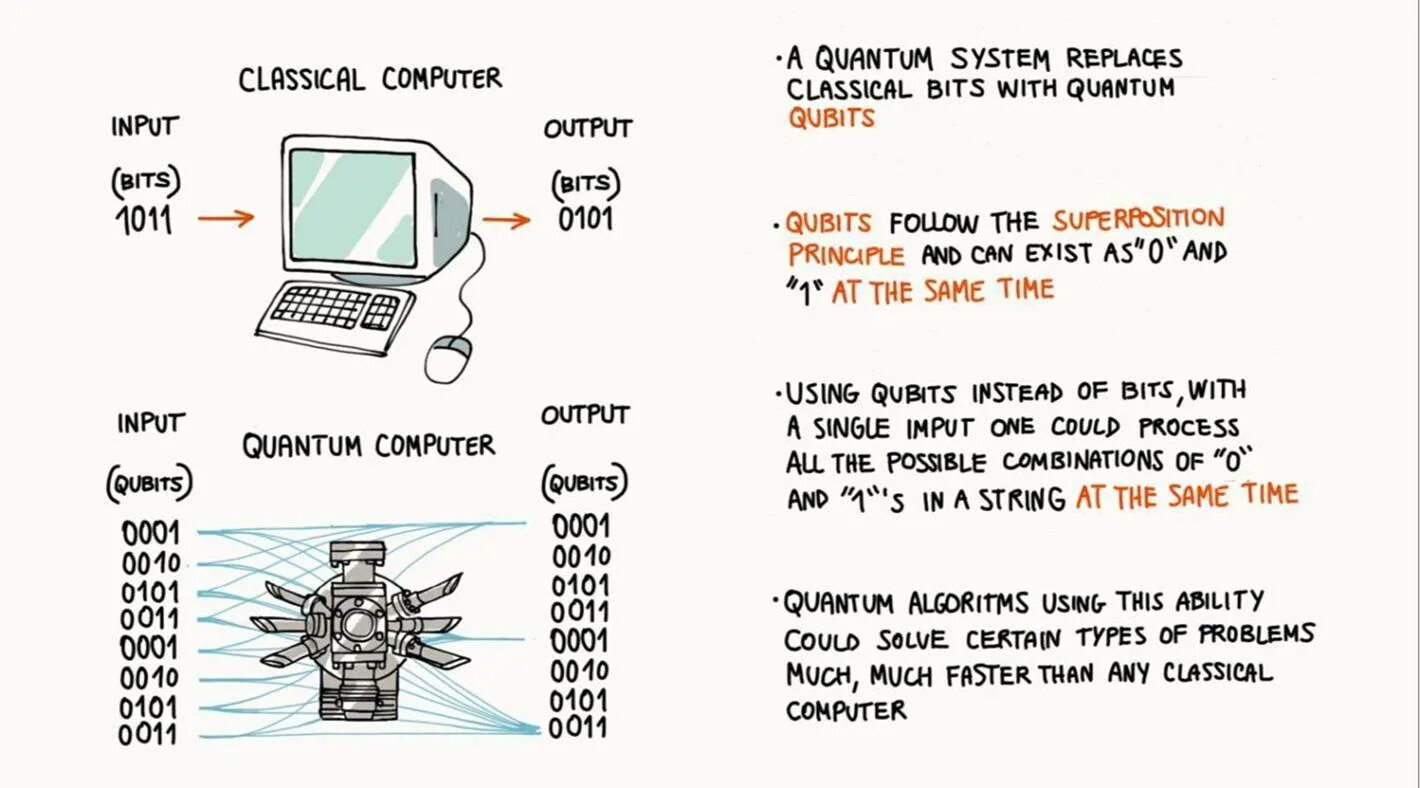 CLASSICAL COMPUTER
INPUT
(BITS)
1011
OUTPUT
(BITS)
0101
INPUT
QUANTUM COMPUTER
OUTPUT
(QUBITS)
0001
0010
0101
0011
0001
0010
0101
0011
(QUBITS)
0001
0010
0101
0011
0001
0010
0101
0011
·A QUANTUM SYSTEM REPLACES
CLASSICAL BITS WITH QUANTUM
QUBITS
·QUBITS FOLLOW THE SUPERPOSITION
PRINCIPLE AND CAN EXIST AS "0" AND
"1" AT THE SAME TIME
·USING QUBITS INSTEAD OF BITS, WITH
A SINGLE IMPUT ONE COULD PROCESS
ALL THE POSSIBLE COMBINATIONS OF "0"
AND "1"'S IN A STRING AT THE SAME TIME
·QUANTUM ALGORITMS USING THIS ABILITY
COULD SOLVE CERTAIN TYPES OF PROBLEMS
MUCH, MUCH FASTER THAN ANY CLASSICAL
COMPUTER